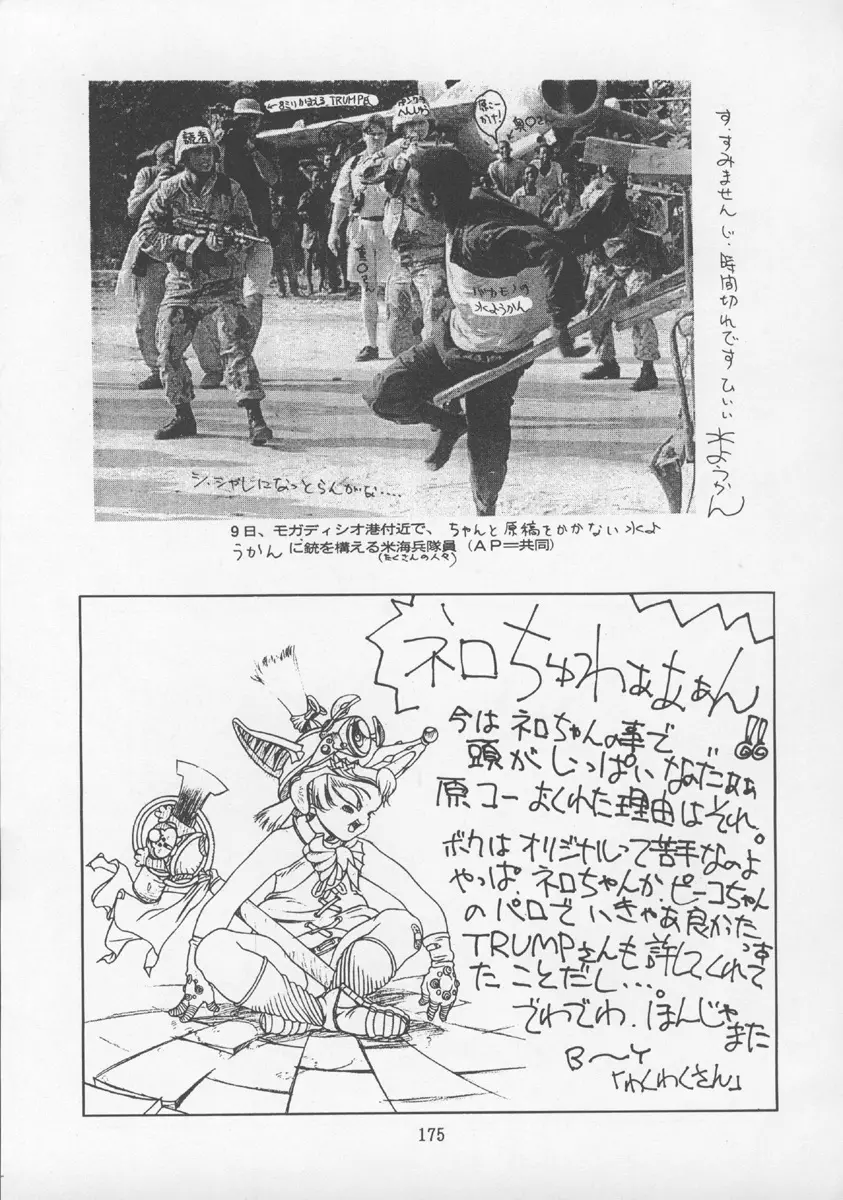 ←8ミリかまえる TRUMP氏
読者
へんしゅう
原ミー
かけ!
貝〇さん
バカモノの
水ようかん
す、すみません じ、時間切れです ひぃぃ 水ようかん
シ、シャレになっとらんがな‥‥
9日、モガディシオ港付近で、ちゃんと原稿をかかない水よ
うかんに銃を構える米海兵隊員(AP=共同)
(たくさんの人々)
ネロちゅわぁぁぁん!!
今はネロちゃんの事で
頭がいっぱいなのだぁぁ
原コーよくれた理由はそれ。
ボクはオリジナルって苦手なのよ
やっぱ、ネロちゃんか、ピーコちゃん
のパロでいきゃあ良かったっす
TRUMPさんも許してくれて
たことだし…。
でわでわ、ぽんじゃ
また
B〜Y
「わくわくさん」
175